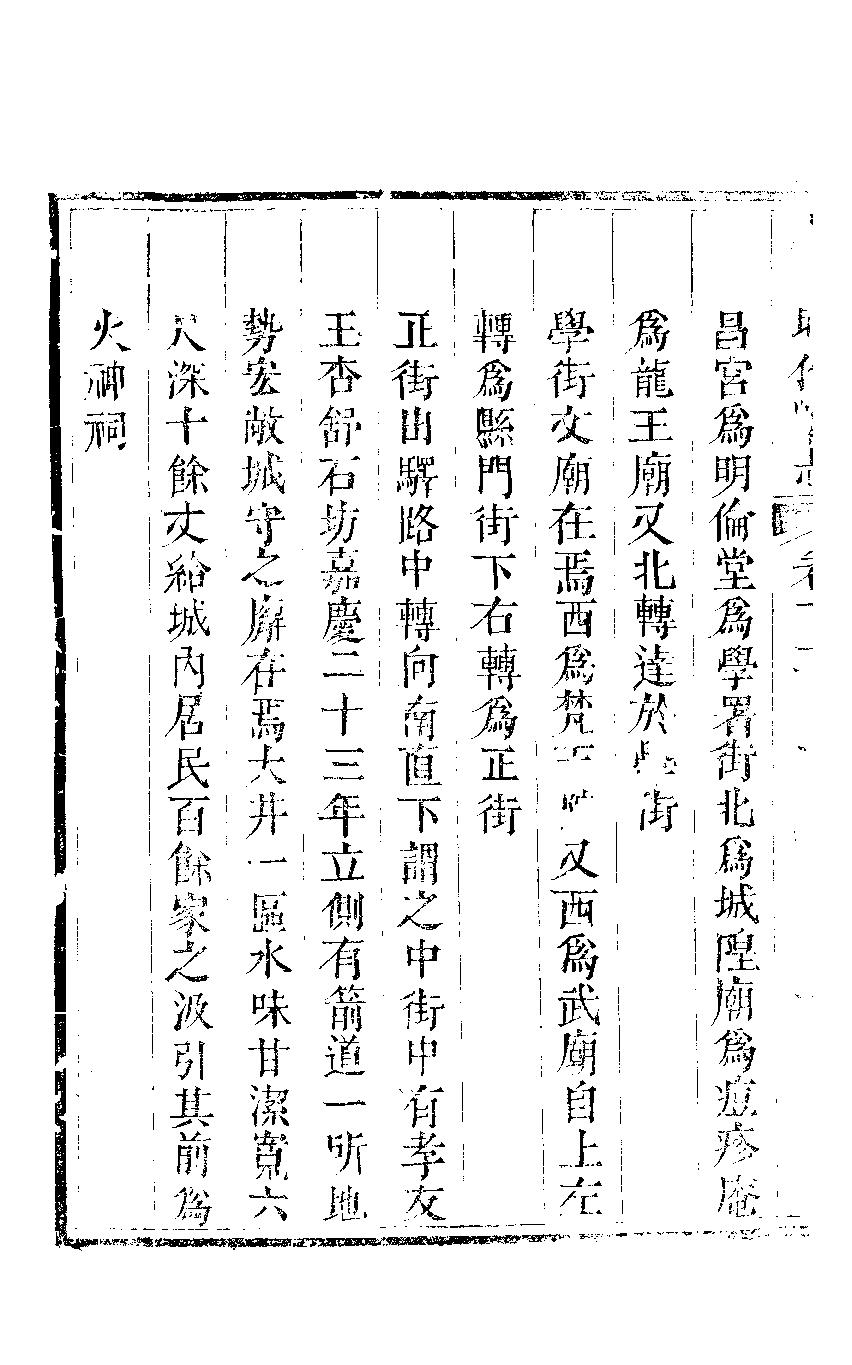 昌宮為明倫堂為學署街北為城隍廟為痘疹庵
為龍王廟又北轉達於學街
學街文廟在焉西為梵王 又西為武廟自上左
轉為縣門街下右轉為正街
正街由驛路中轉向南直下謂之中街中有孝友
王杏舒石坊嘉慶二十三年立側有箭道一所地
勢宏敞城守之廨在焉大井一區水味甘潔寬六
尺深十餘丈給城內居民百餘家之汲引其前為
火神祠